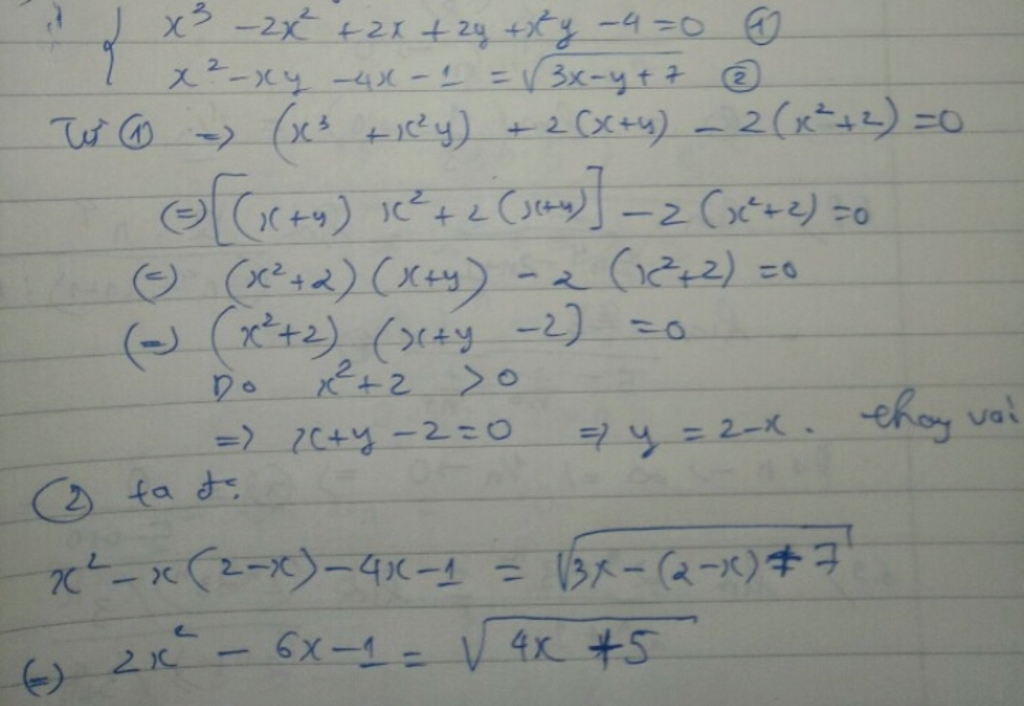 x³ - 2x² + 2x + 2y + x²y - 4 = 0 ①
x² - xy - 4x - 1 = √(3x-y+7) ②
Từ ① => (x³ + x²y) + 2(x+y) - 2(x²+2) = 0
(=) [(x+y) x² + 2(x+y)] - 2(x²+2) = 0
(=) (x²+2)(x+y) - 2(x²+2) = 0
(=) (x²+2)(x+y-2) = 0
Do x²+2 > 0
=> x+y-2 = 0 => y = 2-x. thay vài
② ta đ:
x² - x(2-x) - 4x - 1 = √(3x-(2-x)+7)
(=) 2x² - 6x - 1 = √(4x+5)